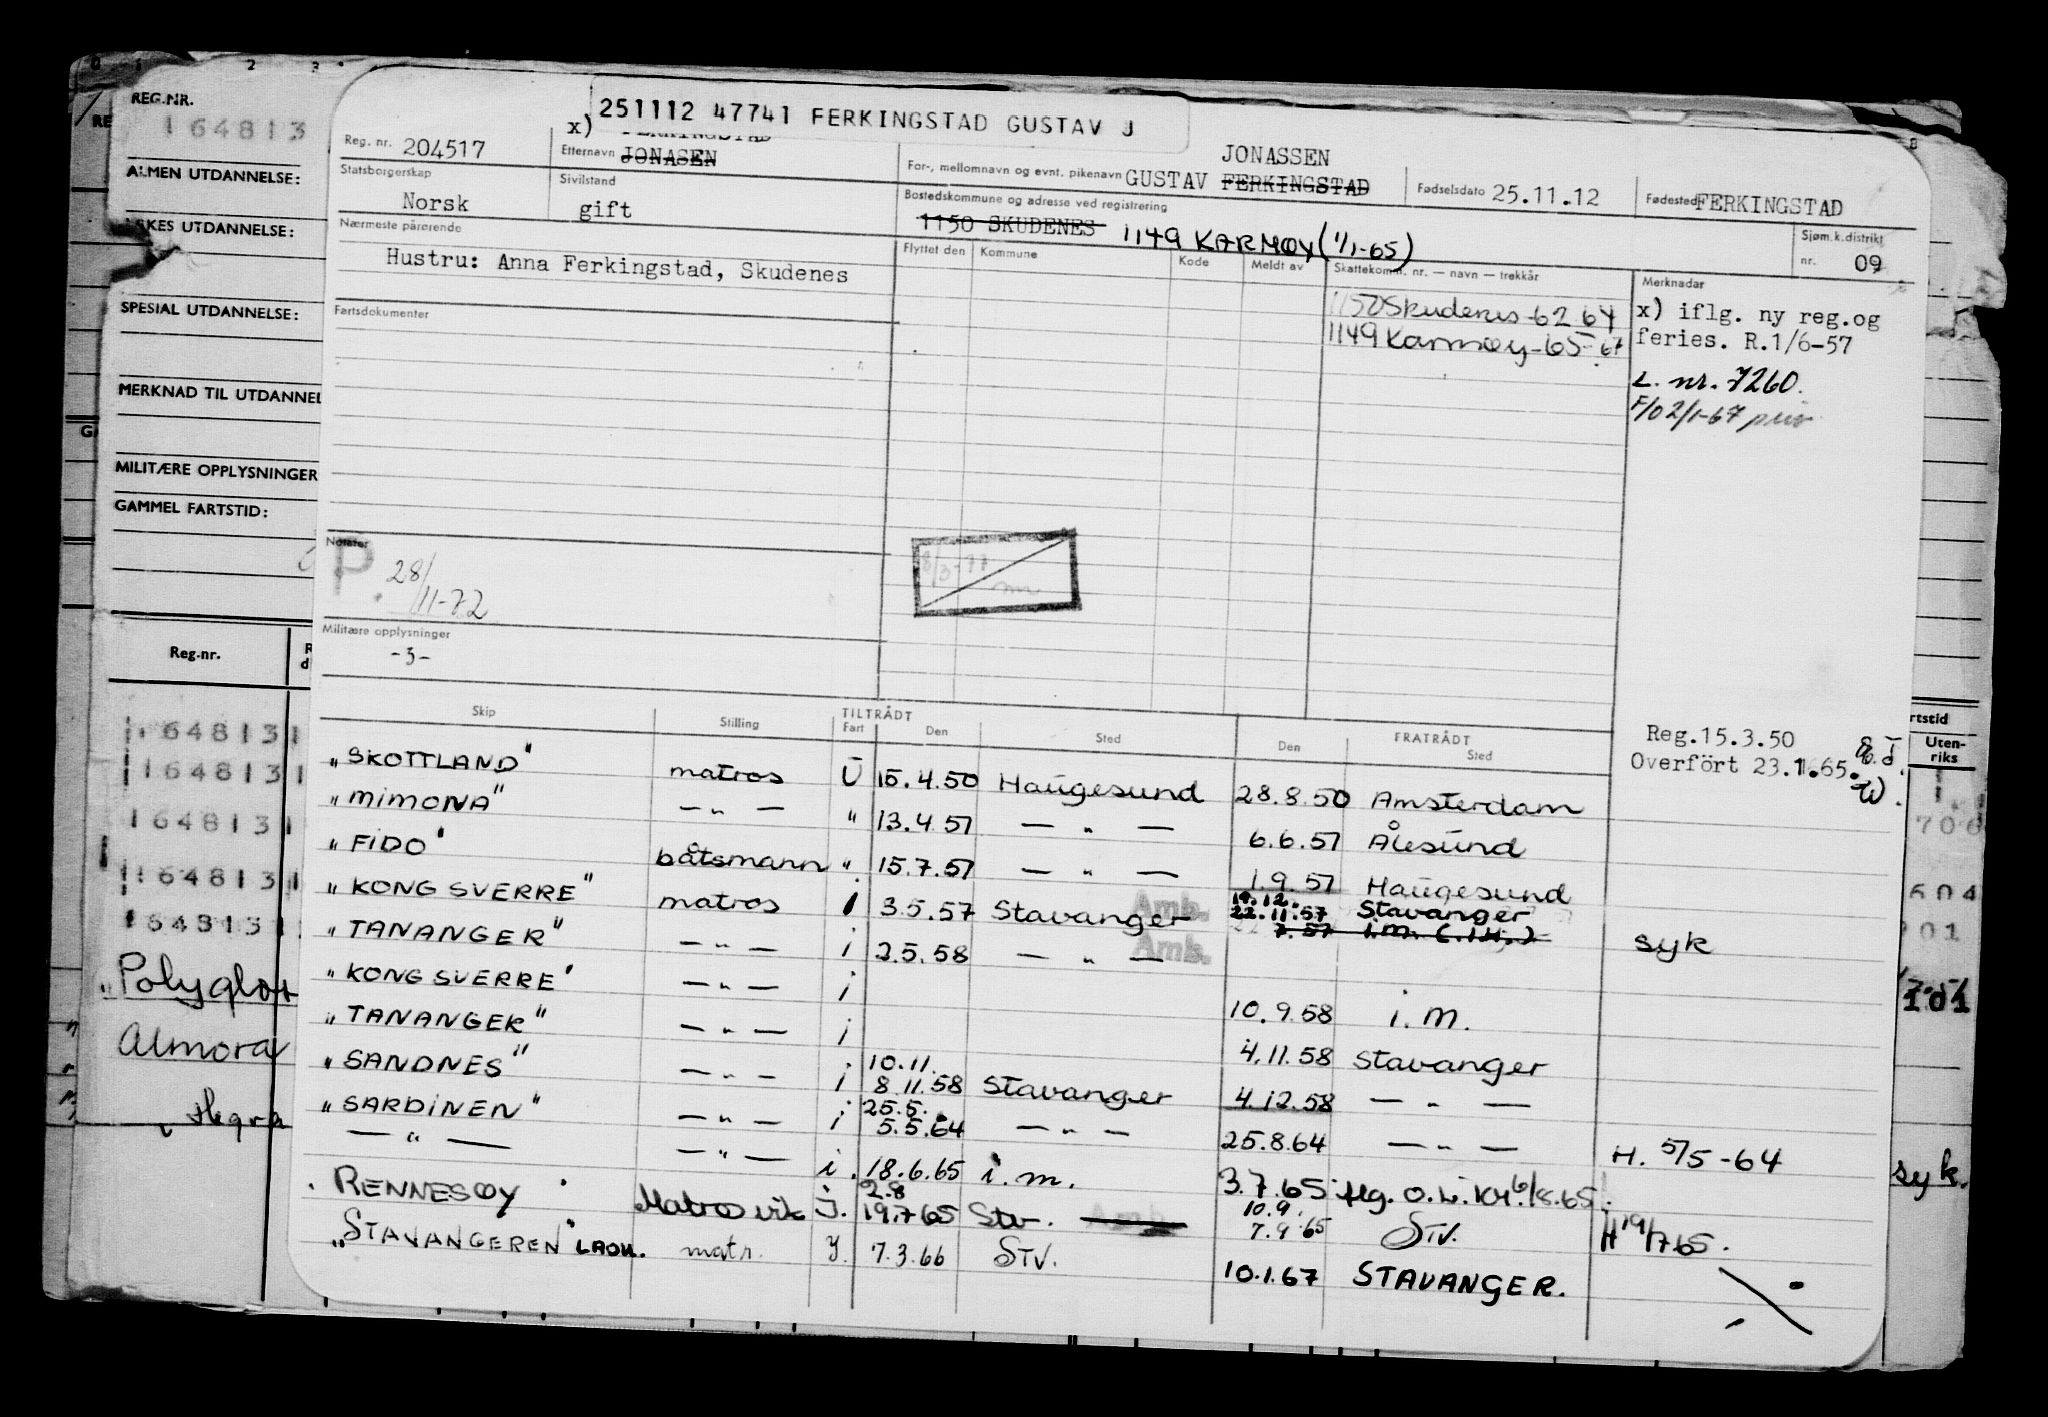 REG.NR.
164813
ALMEN UTDANNELSE:
KES UTDANNELSE:
SPESIAL UTDANNELSE:
MERKNAD TIL UTDANNEL
MILITÆRE OPPLYSNINGER
GAMMEL FARTSTID:
Reg.-nr.
164813
164813
164813
164813
164813
Polyglot
Almora
Hegra
251112 47741 FERKINGSTAD GUSTAV J
x) FERKINGSTAD
Reg. nr. 204517
Etternavn JONASEN
JONASSEN
For-, mellomnavn og evnt. pikenavn GUSTAV FERKINGSTAD
Fødselsdato 25.11.12
Fødested FERKINGSTAD
Statsborgerskap
Norsk
Sivilstand
gift
Bostedskommune og adresse ved registrering
1150 SKUDENES 1149 KARMØY (1/1-65)
Sjøm.k.distrikt
nr. 09
Nærmeste pårørende
Hustru: Anna Ferkingstad, Skudenes
Flyttet den Kommune Kode Meldt av
Skattekomm. nr. — navn — trekkår
1150 Skudenes -62 64
1149 Karmøy -65- 67
Merknader
x) iflg. ny reg.og
feries. R.1/6-57
L. nr. 7260.
F/0 2/1-67
Fartsdokumenter
Notater
P. 28/11-72
8/3-77
Militære opplysninger
-3-
Reg.15.3.50
Overført 23.1.65.
Skip Stilling TILTRÅDT Fart Den Sted FRATRÅDT Den Sted
"SKOTTLAND" matros U 15.4.50 Haugesund 28.8.50 Amsterdam
"MIMONA" — " — " 13.4.57 — " — 6.6.57 Ålesund
"FIDO" båtsmann " 15.7.57 — " — 1.9.57 Haugesund
"KONG SVERRE" matros i 3.5.57 Stavanger Amb. 19.12. 22.11.57 Stavanger
7.57 i.m. syk
"TANANGER" — " — i 2.5.58 — " — Amb.
"KONG SVERRE" — " — i 10.9.58 i.m.
"TANANGER" — " — i 4.11.58 Stavanger
"SANDNES" — " — i 10.11. 8.11.58 Stavanger 4.12.58 — " —
"SARDINEN" — " — i 25.5. 5.5.64 — " — 25.8.64 — " — H. 5/5-64
— " — — " — i. 18.6.65 i.m. 3.7.65
RENNESØY Matros vik I. 2.8 19.7.65 Stv. Amb. 10.9. 7.9.65 Stv. H 19/7 65.
"STAVANGEREN" matr. 7.3.66 STV. 10.1.67 STAVANGER.
rtstid
Uten-
riks
706
604
901
101
syk.